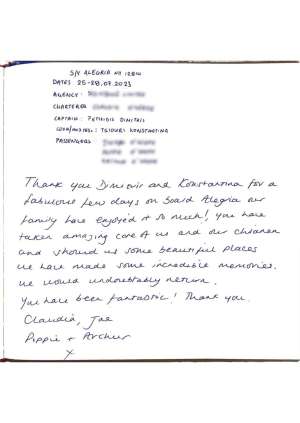 S/V ALEGRIA
DATES 25-28.07.2023
AGENCY:
CHARTERER
CAPTAIN: PETRIDIS DIMITRIS
COOK/HOSTESS: TSIOURI KONSTANTINA
PASSENGERS
Thank you Dimitris and Konstantina for a
fabulous few days on board Alegria our
family have enjoyed it so much! you have
taken amazing care of us and our children
and should us some beautiful places
we have made some incredible memories.
we would undoubtably return.
You have been fantastic! Thank you.
Claudia, Joe
Poppie + Archer
x